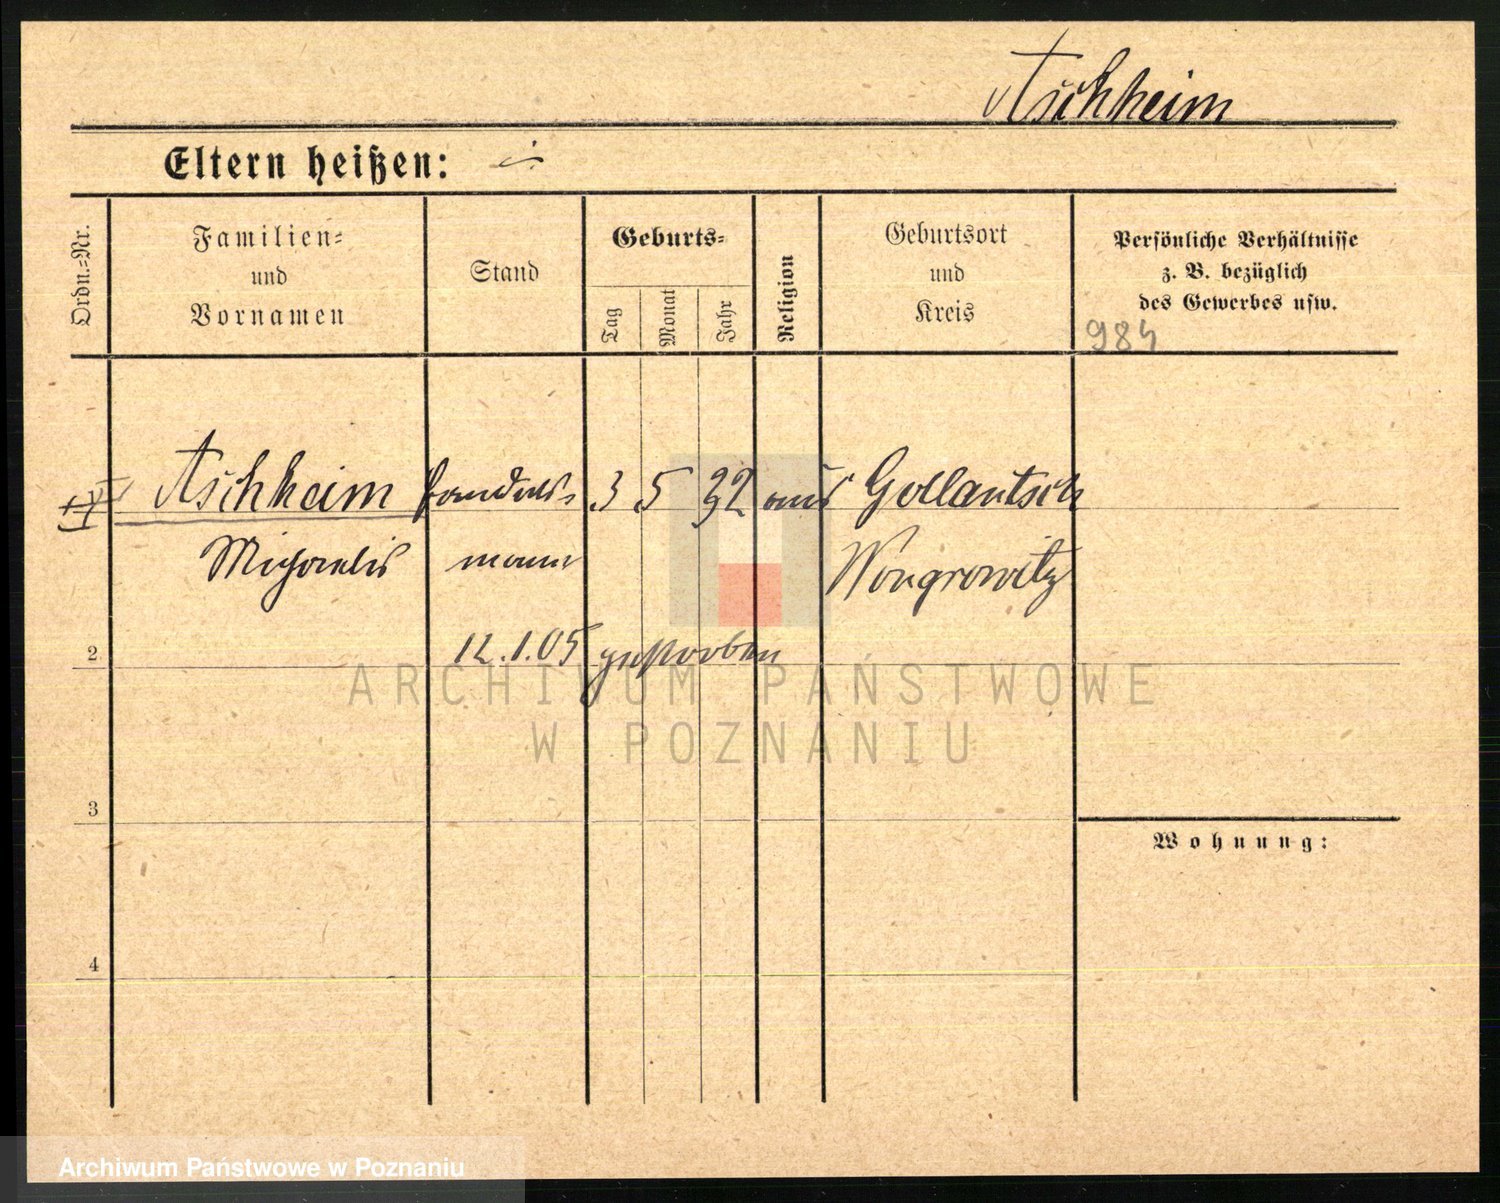 Aschheim
Eltern heißen: ./.
Ordn.=Nr.
Familien=
und
Vornamen
Stand
Geburts=
Tag
Monat
Jahr
Religion
Geburtsort
und
Kreis
Persönliche Verhältnisse
z. B. bezüglich
des Gewerbes usw.
984
Aschheim Handels= 3 5 32 Gollantsch
Michaelis mann Wongrowitz
2 12.1.05 gestorben
ARCHIWUM PAŃSTWOWE
W POZNANIU
3
Wohnung:
4
Archiwum Państwowe w Poznaniu